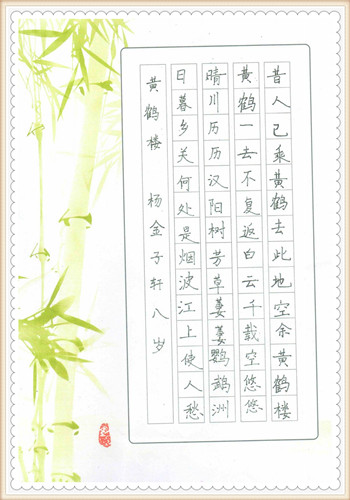 昔人已乘黄鹤去此地空余黄鹤楼
黄鹤一去不复返白云千载空悠悠
晴川历历汉阳树芳草萋萋鹦鹉洲
日暮乡关何处是烟波江上使人愁
黄鹤楼 杨金子轩八岁